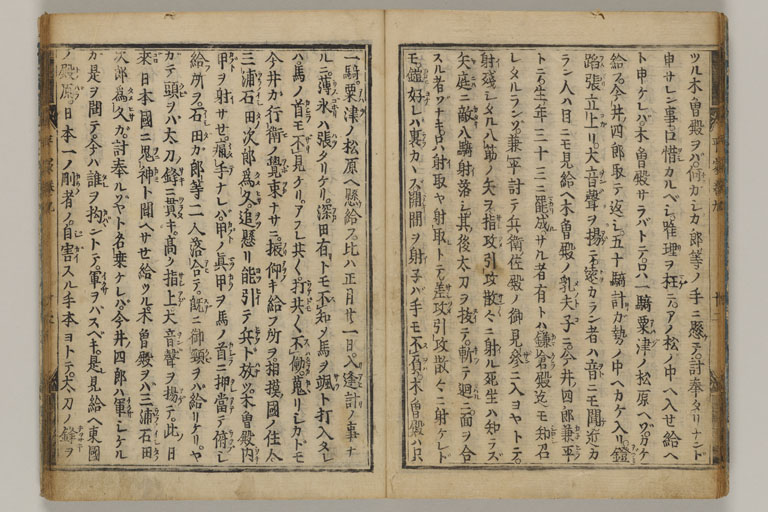 ツル木曽殿ヲバ何カシカ郎等ノ手ニ懸テ討奉タリナンド
申サレン事口惜カルヘシ唯理ヲ狂テアノ松ノ中ヘ入セ給ヘ
ト申ケレバ木曽殿サラバトテ只一騎粟津ノ松原ヘゾカケ
給フ今井四郎取テ返シ五十騎計カ勢ノ中ヘカケ入リ鐙
踏張立上リ大音聲ヲ揚テ遠カラン者ハ音ニモ聞近カ
ラン人ハ目ニモ見給ヘ木曽殿ノ乳夫子ニ今井四郎兼平
トテ生年三十三ニ罷成サル者有トハ鎌倉殿迄モ知召
レタルランゾ兼平討テ兵衛佐殿ノ御見参ニ入ヨヤトテ
射残シタル八筋ノ矢ヲ指攻引攻散々ニ射ル死生ハ知ラズ
矢庭ニ敵八騎射落シ其後太刀ヲ抜テ斬テ廻ニ面ヲ合
スル者ゾナキ只射取ヤ射取トテ差攻引攻散々ニ射ケレド
モ鎧好レハ裏カヽズ開間ヲ射子ハ手モ不負木曽殿ハ只
一騎粟津ノ松原ヘ懸給フ比ハ正月廿一日入逢計ノ事ナ
ルニ薄氷ハ張タリケリ深田有トモ不知シテ馬ヲ颯ト打入タレ
ハ馬ノ首モ不見ケリアフレ共〱打共〱不働荒リシカトモ
今井カ行衛ノ覺束ナサニ振仰キ給フ所ヲ相摸國ノ住人
三浦石田次郎為久追懸リ能引テ兵ト放ツ木曽殿内
甲ヲ射サセ痛手ナレハ甲ノ真甲ヲ馬ノ首ニ押當テ俯シ
給所ヲ石田カ郎等二人落合テ既ニ御頸ヲハ給リケリヤ
カテ頸ヲハ太刀ノ鋒ニ貫キ高ク指上大音聲ヲ揚テ此日
来日本國ニ鬼神ト聞ヘサせ給ツル木曽殿ヲハ三浦石田
次郎為久カ討奉ルゾヤト名乗ケレバ今井四郎ハ軍シケル
カ是ヲ聞テ今ハ誰ヲ拘ントテ軍ヲバスベキ是見給ヘ東國
ノ殿原日本一ノ剛者ノ自害スル手本ヨトテ太刀ノ鋒ヲ